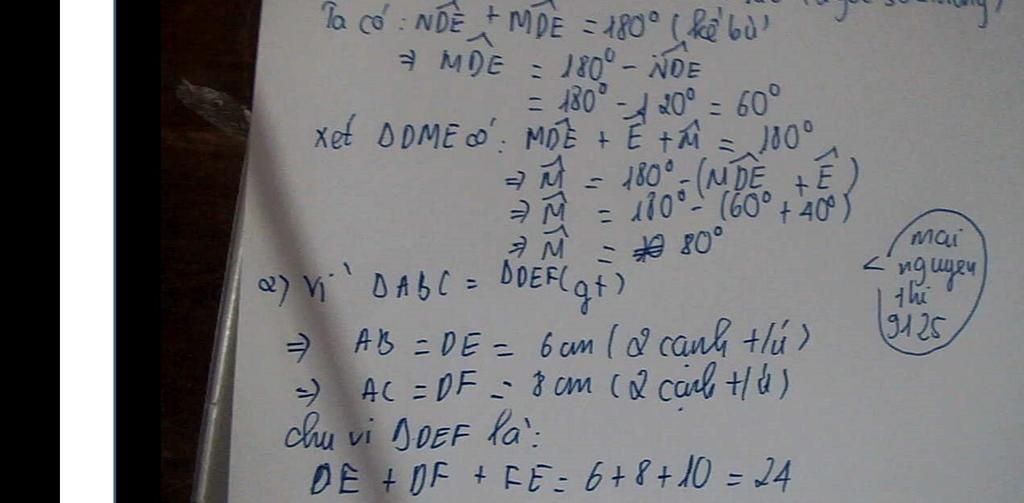 Ta có: NDE + MDE = 180° (kề bù)
⇒ MDE = 180° - NDE
= 180° - 120° = 60°
xét ΔDME có: MDE + Ê + M̂ = 180°
⇒ M̂ = 180° - (MDE + Ê)
⇒ M̂ = 180° - (60° + 40°)
⇒ M̂ = 80°
2) Vì ΔABC = ΔDEF (gt)
⇒ AB = DE = 6 cm (2 cạnh t/ứ)
⇒ AC = DF = 8 cm (2 cạnh t/ứ)
Chu vi ΔDEF là:
DE + DF + FE = 6 + 8 + 10 = 24
mai
nguyen
thi
9125